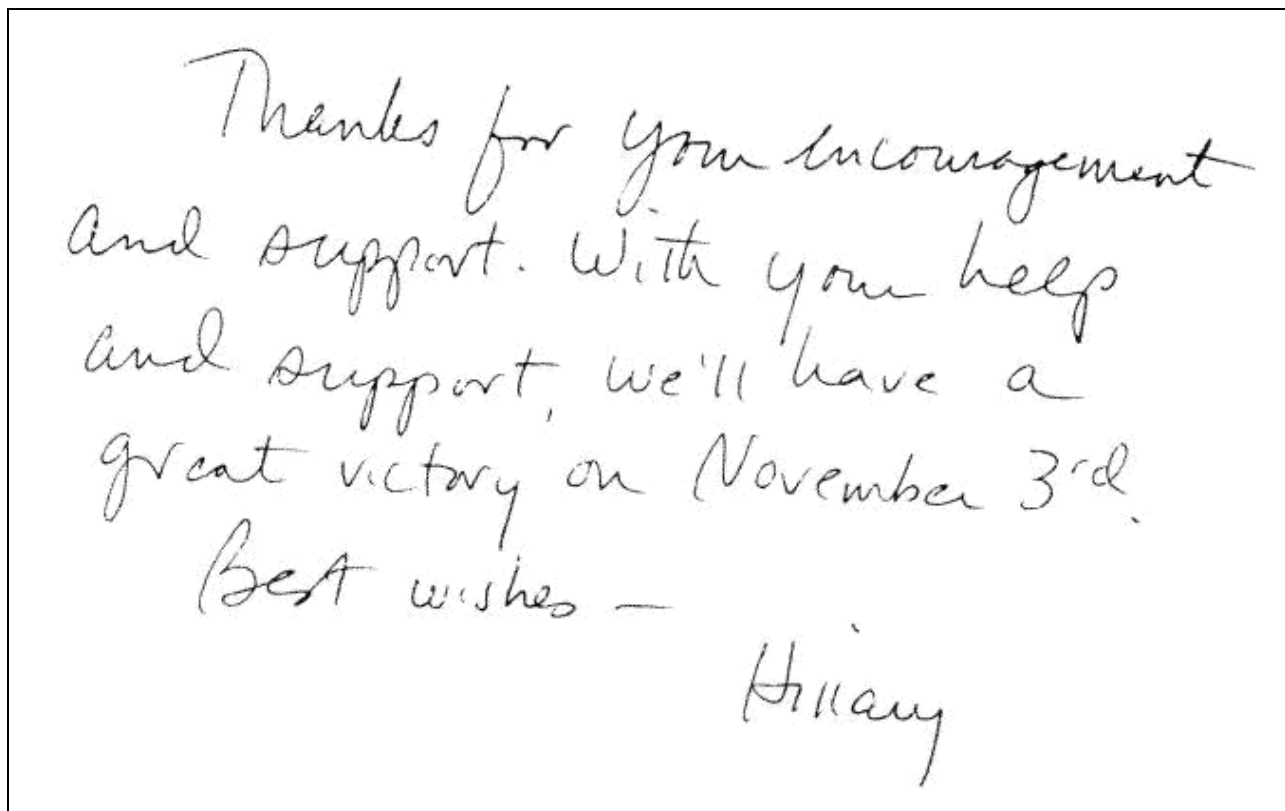 Thanks for your encouragement
and support. With your help
and support, we'll have a
great victory on November 3rd.
Best wishes —
Hillary